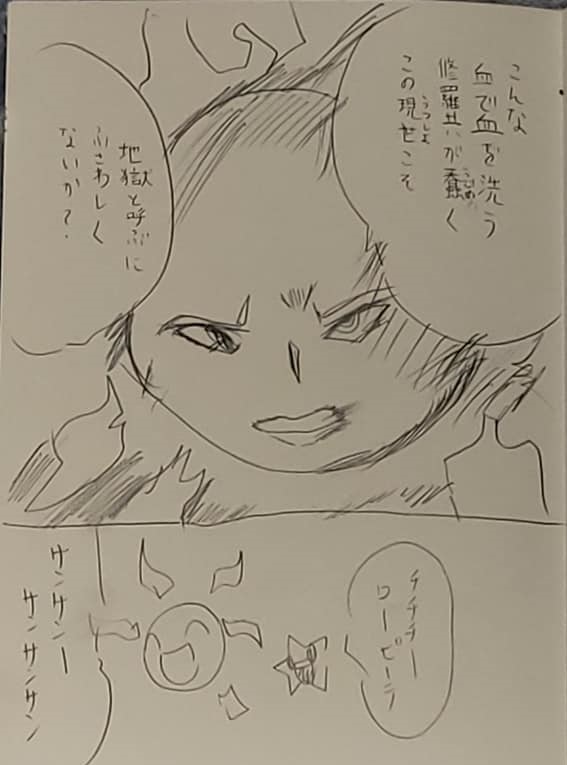 こんな
血で血を洗う
修羅共が蠢く
この現世こそ
うつしよ
地獄と呼ぶに
ふさわしく
ないか?
サンサンー
サンサンサン